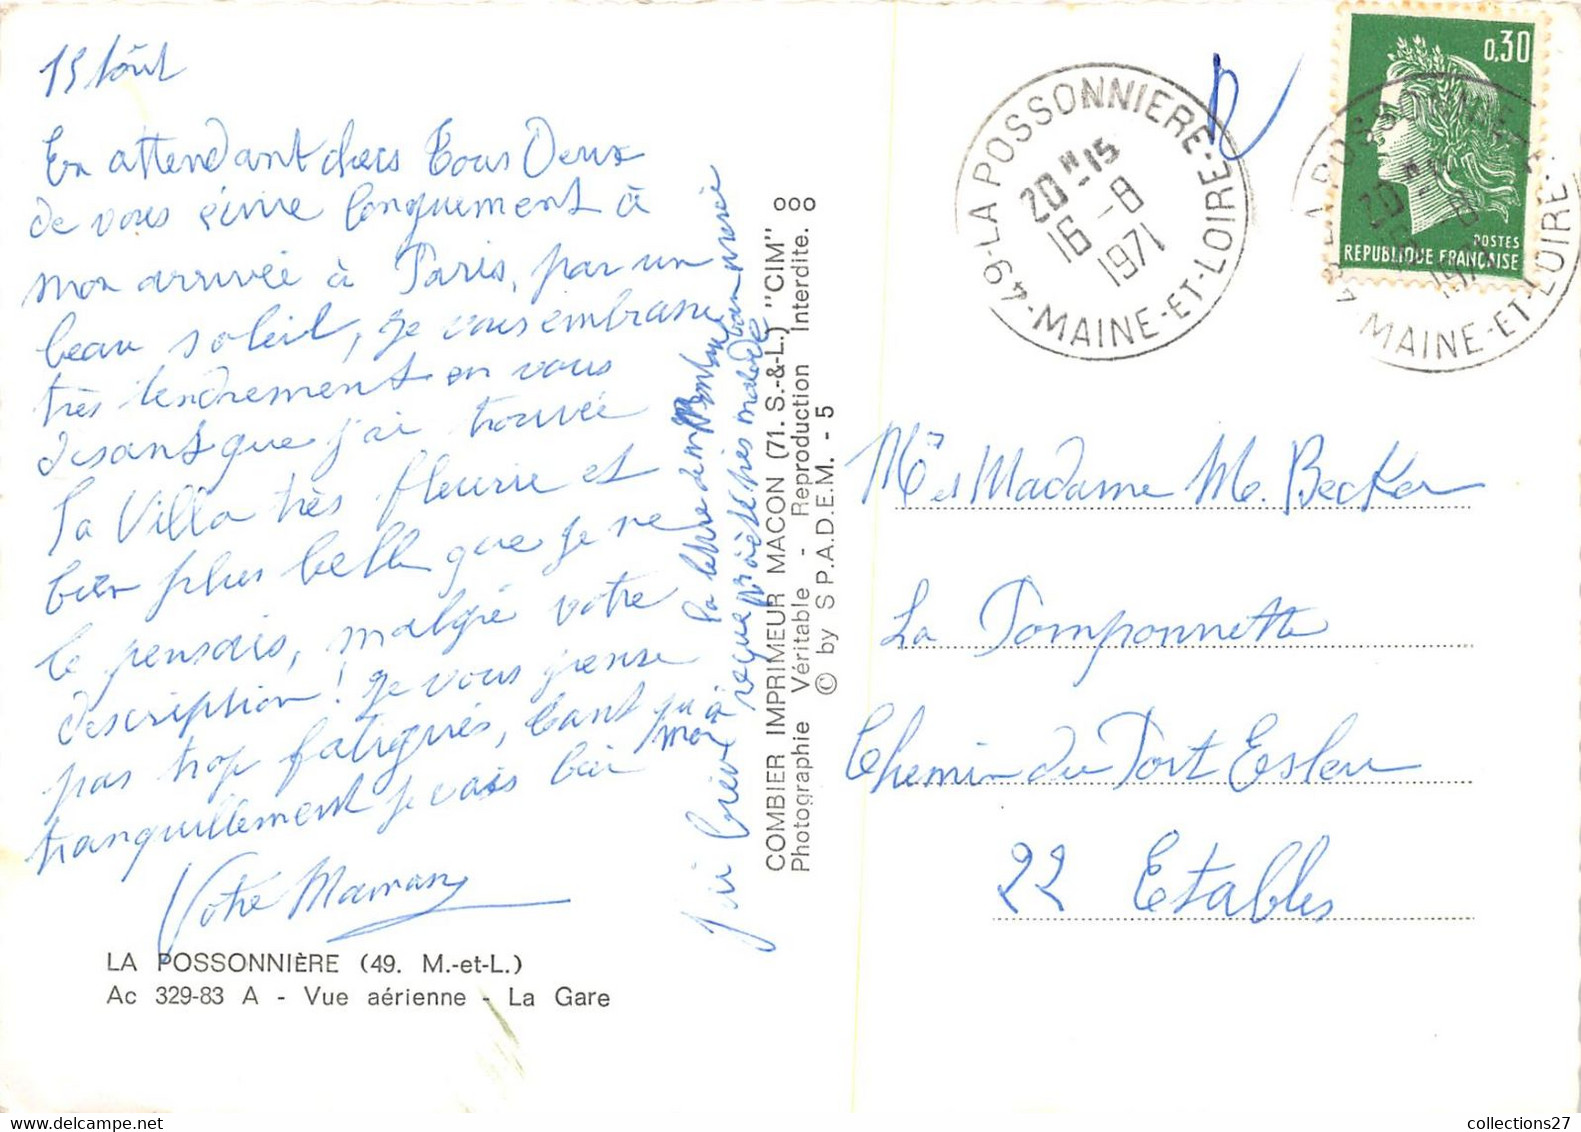 15 Août
En attendant chers Tous Deux
de vous écrire longuement à
mon arrivée à Paris, par un
beau soleil, je vous embrasse
très tendrement en vous
disant que j'ai trouvée
la Villa très fleurie et
bien plus belle que je ne
le pensais, malgré votre
description! Je vous pense
pas trop fatigués, tant qu'à
tranquillement je vais bien
moi
Votre Maman
J'ai brève la lettre de
reçue très malade
LA POSSONNIÈRE (49. M.-et-L.)
Ac 329-83 A - Vue aérienne - La Gare
COMBIER IMPRIMEUR MACON (71. S.-&-L.) "CIM"
Photographie Véritable - Reproduction Interdite.
© by S.P.A.D.E.M. - 5
ooo
R
49-LA POSSONNIERE-MAINE-ET-LOIRE
20H15
16-8
1971
0,30
POSTES
REPUBLIQUE FRANÇAISE
Mr et Madame M. Becker
La Pomponnette
Chemin du Port Eslen
22 Etables
collections27